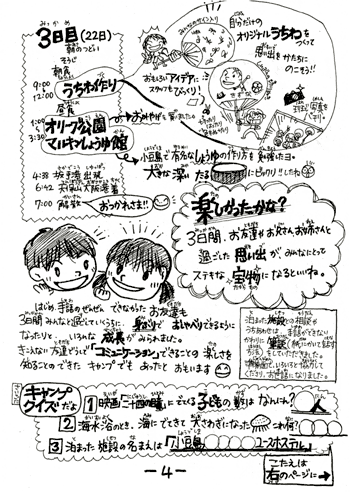 みっかめ
3日目(22日)
朝のつどい
そうじ
朝食
9:00
12:00
うちわ作り
昼食
オリーブ公園
マルキンしょうゆ館
3:30
6:42
7:00
解散
おつかれさま!!
自分だけの
オリジナルうちわをつくって
思い出をかたちに
のこそう!!
おもしろいアイデアに
スタッフもびっくり!
小豆島で有名なしょうゆの作り方を勉強したヨ。
大きな深いたる
にビックリ!!したね
楽しかったかな?
3日間、お友達やお兄さん、お姉さんと
過ごした思い出がみなにとって
ステキな宝物になるといいね。
はじめ、手話のぜんぜんできなかったお友達も
3日間みんなと過ごしていくうちに、
おしゃべりできるように
なったりと、いろんな成長がみられました。
きこえない方達どうしで「コミュニケーション」できることの楽しさを
知ることのできたキャンプでもあったとおもいます
泊まった施設との相談や
うちあわせは、手話ができない
かわりに筆談(紙にかいて話す
方法)をしていただきました。
キャンプ
クイズだよ
1 映画「二十四の瞳」にでてくる子どもの数はなんにん?
人
2 海水浴のとき、海にでてきて大さわぎになった
これ何?
3 泊まった施設の名まえは「小豆島
ユースホステル」
こたえは
右のページに→
-4-